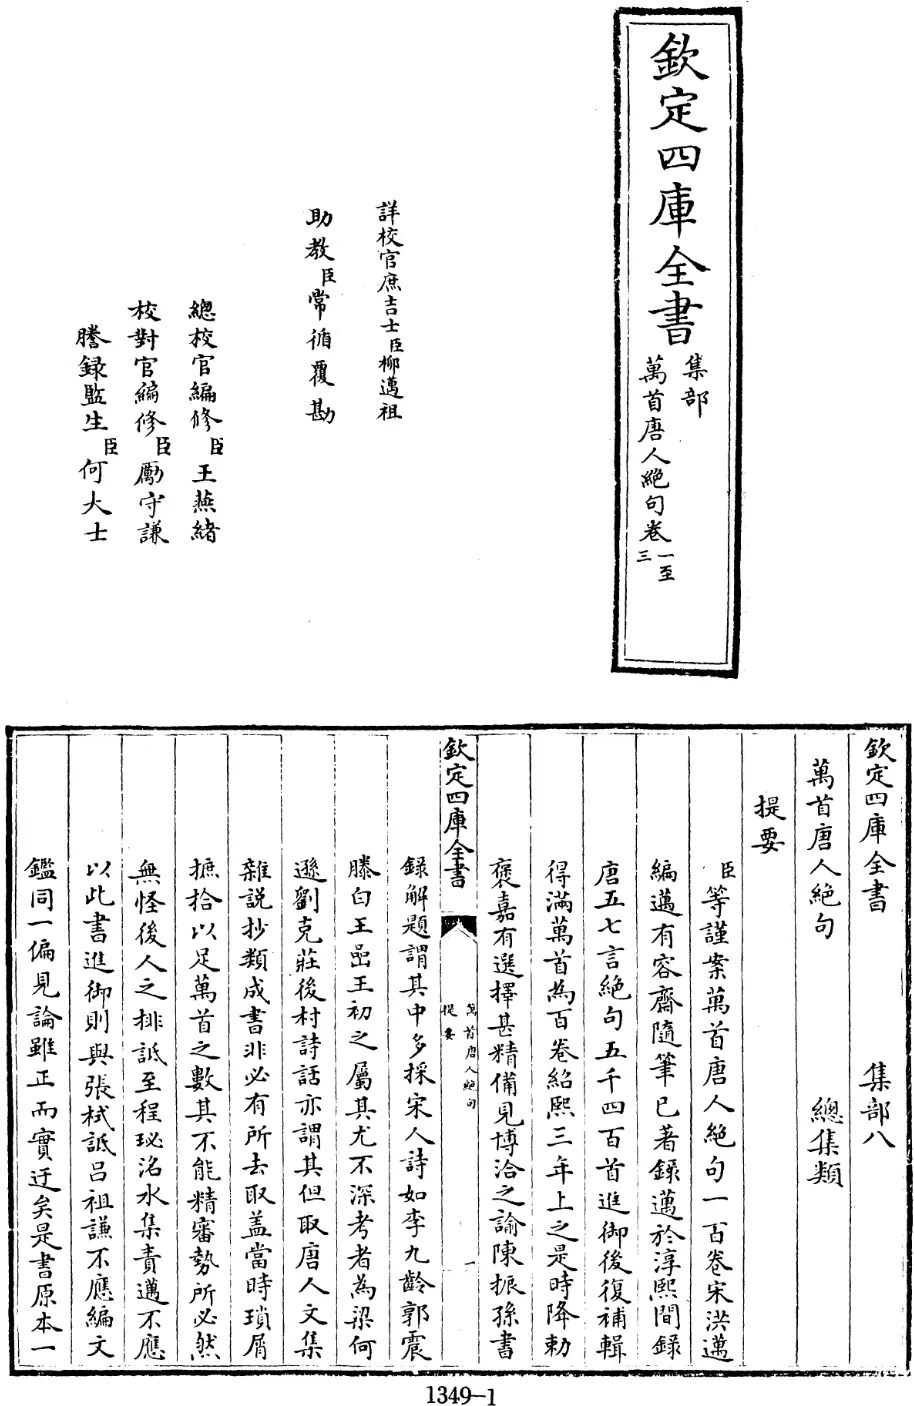 欽定四庫全書
集部
萬首唐人絕句卷一至三
詳校官庶吉士臣柳邁祖
助教臣常循覆勘
總校官編修臣王燕緒
校對官編修臣勵守謙
謄録監生臣何大士
欽定四庫全書 集部八
萬首唐人絕句 總集類
提要
臣等謹案萬首唐人絕句一百卷宋洪邁
編邁有容齋隨筆已著錄邁於淳熙間錄
唐五七言絕句五千四百首進御後復補輯
得滿萬首為百卷紹熙三年上之是時降勅
褒嘉有選擇甚精備見博洽之諭陳振孫書
欽定四庫全書
萬首唐人絕句
提要
一
録解題謂其中多採宋人詩如李九齡郭震
滕白王嵒王初之屬其尤不深考者為梁何
遜劉克莊後村詩話亦謂其但取唐人文集
雜説抄類成書非必有所去取盖當時瑣屑
摭拾以足萬首之數其不能精審勢所必然
無怪後人之排詆至程珌洺水集責邁不應
以此書進御則與張栻詆呂祖謙不應編文
鑑同一偏見論雖正而實迂矣是書原本一
1349-1